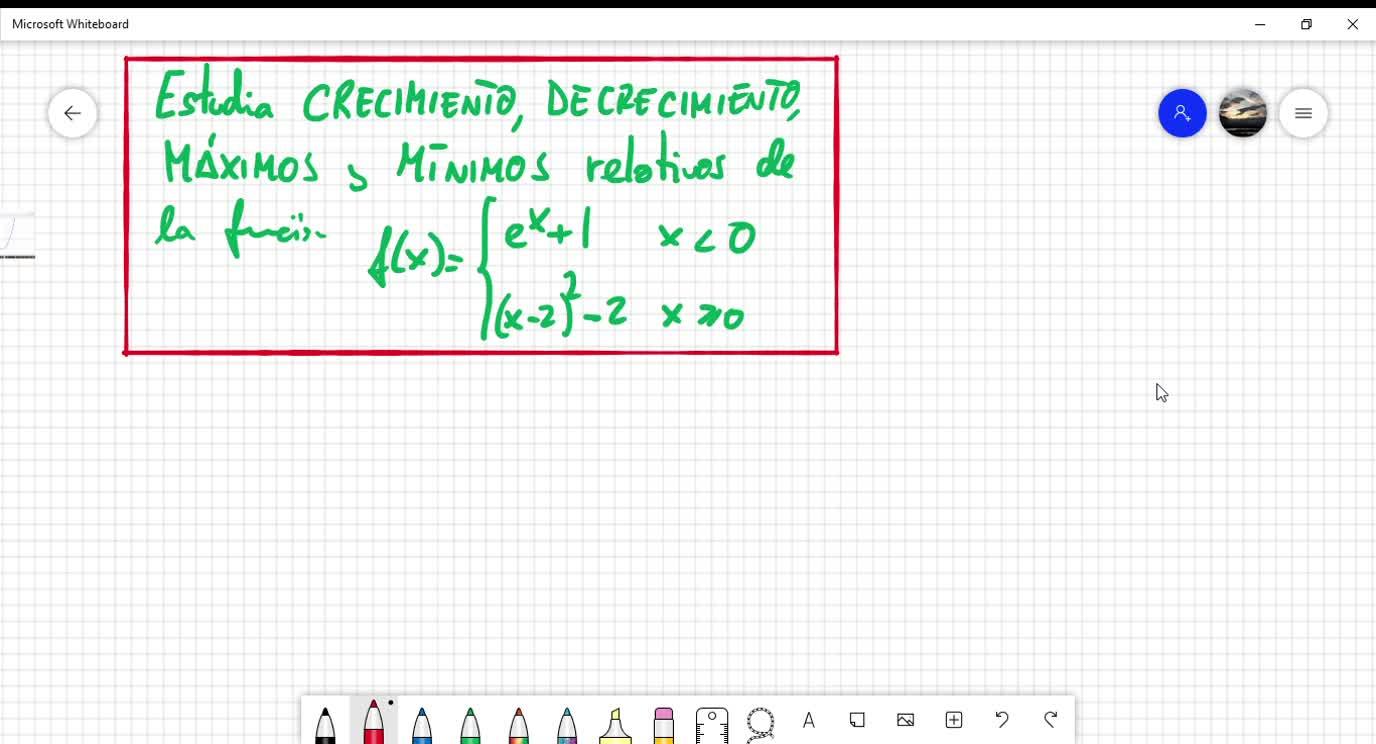 Microsoft Whiteboard
Estudia CRECIMIENTO, DECRECIMIENTO,
MÁXIMOS y MÍNIMOS relativos de
la función f(x)= { e^x+1 x < 0
(x-2)^2-2 x ≥ 0
A